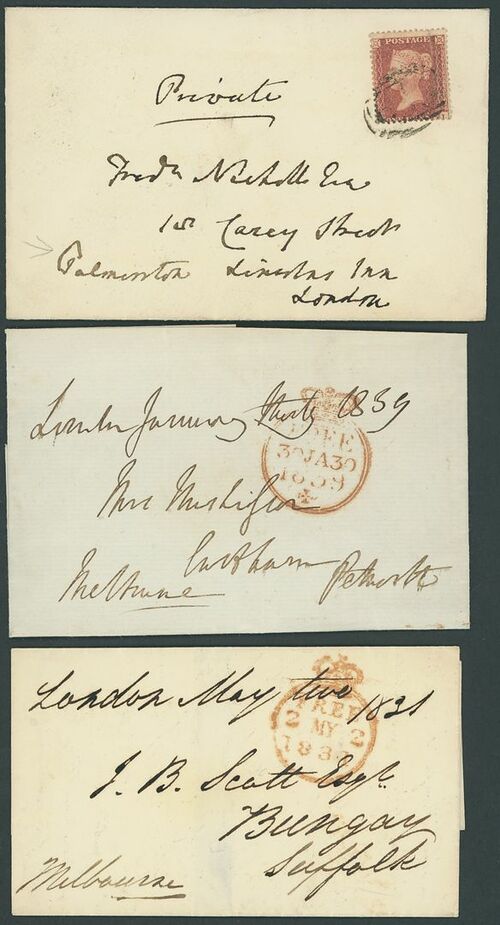 POSTAGE
Private
Fredk Nicholls Esq
1 Carey Street
Palmerston Lincolns Inn
London
London January thirty 1839
FREE
30JA30
1839
Mrs
Melbourne Petworth
London May two 1831
FREE
2 MY 2
183
J. B. Scott Esqr.
Bungay
Suffolk
Melbourne